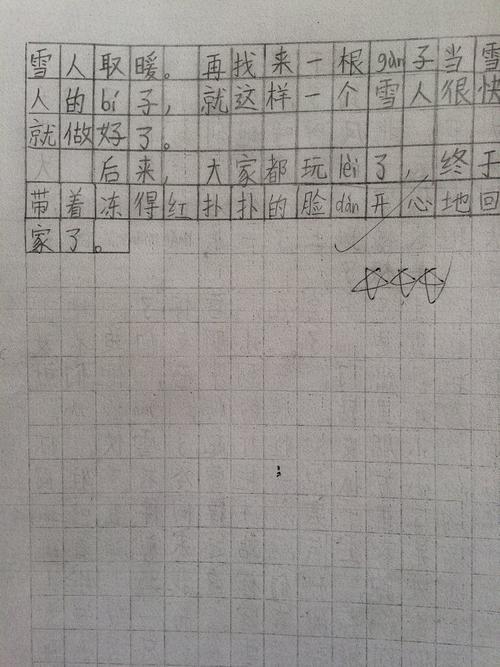 雪人取暖。再找来一根gǎn子当雪
人的bí子，就这样一个雪人很快
就做好了。
后来，大家都玩lèi了，终于
带着冻得红扑扑的脸dàn开心地回
家了。